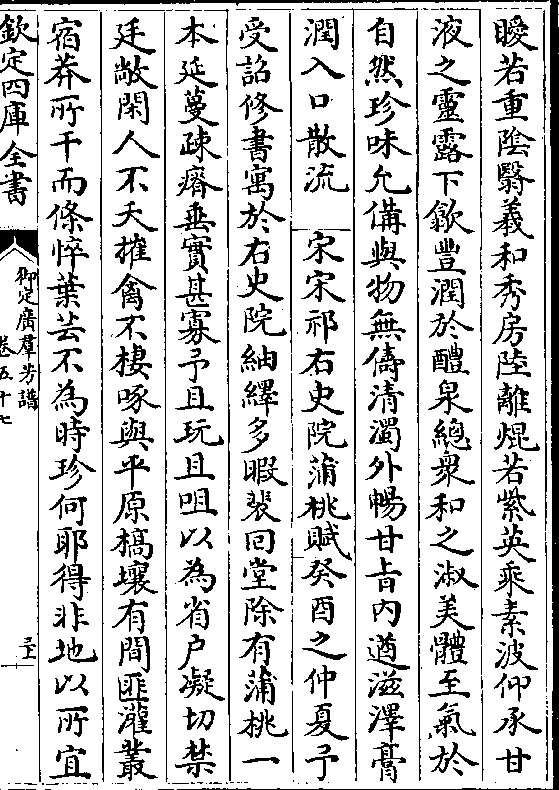 曖若重陰翳羲和秀房陸離焜若紫英乘素波仰承甘
液之靈露下歙豐潤於醴泉總衆和之淑美體至氣於
自然珍味允備與物無儔清濁外暢甘旨内遒滋澤膏
潤入口散流　宋宋祁右史院蒲桃賦癸酉之仲夏予
受詔修書寓於右史院紬繹多暇裴回堂除有蒲桃一
本延蔓疎瘠垂實甚寡予且玩且咀以為省户凝切禁
廷敞閑人不夭摧禽不棲啄與平原槁壤有間匪灌叢
宿莽所干而條悴葉芸不為時珍何耶得非地以所宜
欽定四庫全書
御定廣羣芳譜
卷五十七